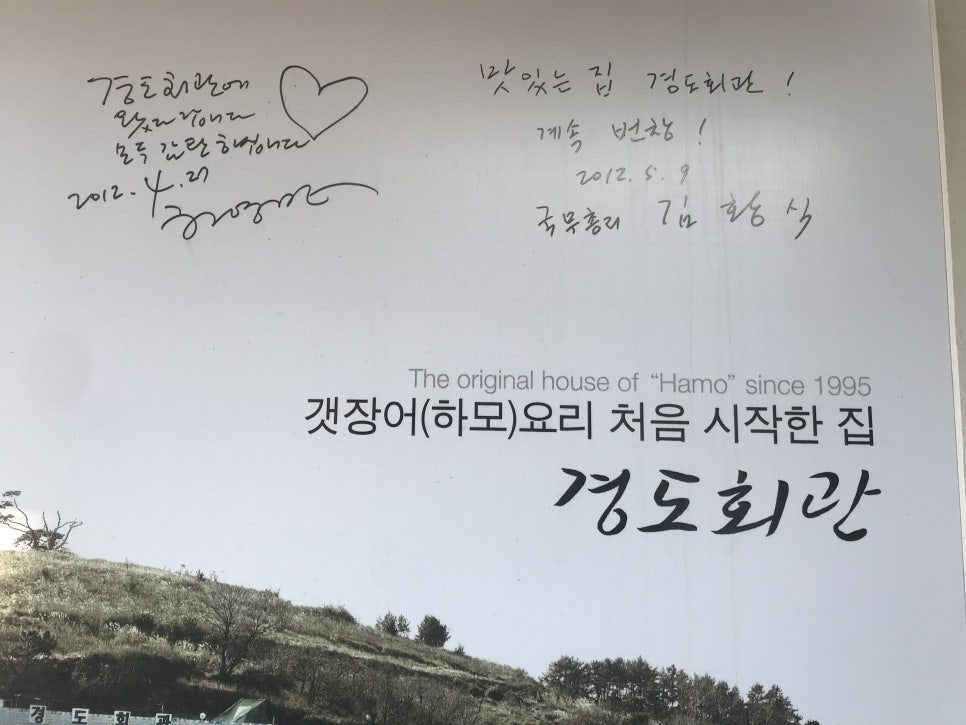 경도회관에
왔다갑니다
모두 감탄하였습니다
2012. 4. 27
맛있는 집 경도회관 !
계속 번창 !
2012. 5. 9
국무총리 김황식
The original house of “Hamo” since 1995
갯장어(하모)요리 처음 시작한 집
경도회관
경도회관